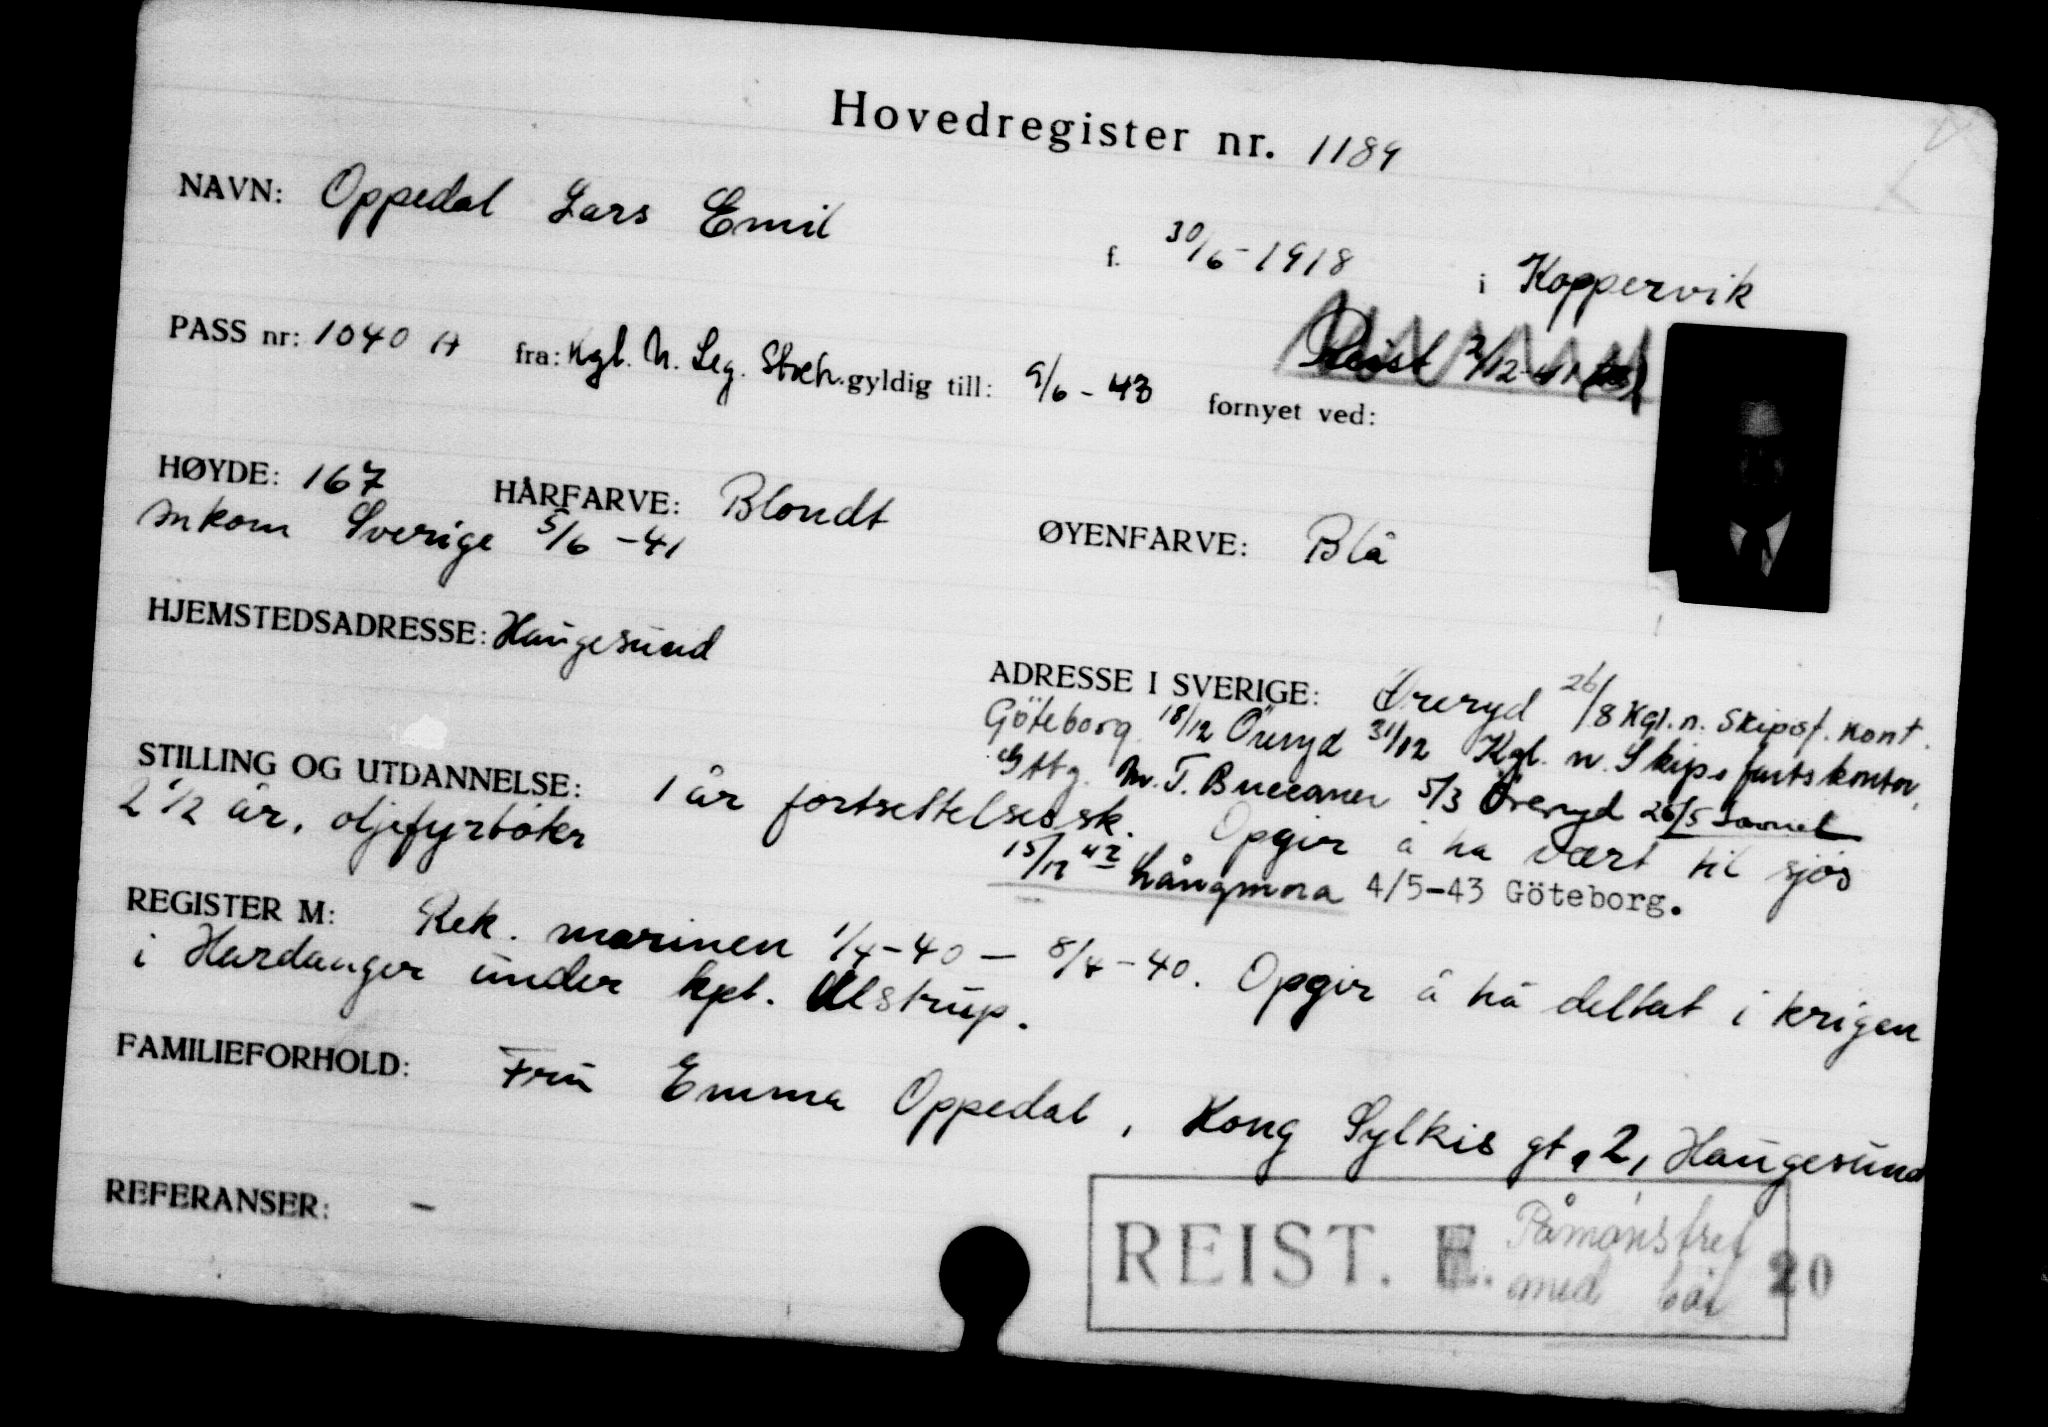 Hovedregister nr. 1189
NAVN: Oppedal Lars Emil f. 30/6-1918 i Koppervik
Reist 2/12-41
PASS nr: 1040 A fra: Kgl. N. Leg. Stockh. gyldig till: 9/6-43 fornyet ved:
HØYDE: 167 HÅRFARVE: Blondt ØYENFARVE: Blå
Innkom Sverige 5/6-41
HJEMSTEDSADRESSE: Haugesund
ADRESSE I SVERIGE: Öreryd 26/8 Kgl. n. Skipsf. kont.
Göteborg 18/12 Öreryd 31/12 Kgl. n. Skipsfartskontor,
Gtbg. M.T. Buccaneer 5/3 Öreryd 26/5
STILLING OG UTDANNELSE: 1 år fortsettelsessk. Opgir å ha vært til sjøs
2 1/2 år, oljefyrbøter
15/12 42 Långmora 4/5-43 Göteborg.
REGISTER M: Rek. marinen 1/4-40 — 8/4-40. Opgir å ha deltat i krigen
i Hardanger under kpt. Ulstrup.
FAMILIEFORHOLD: Fru Emma Oppedal, Kong Sylkis gt. 2, Haugesund
REFERANSER: –
REIST. E. Påmønstret 20
med båt